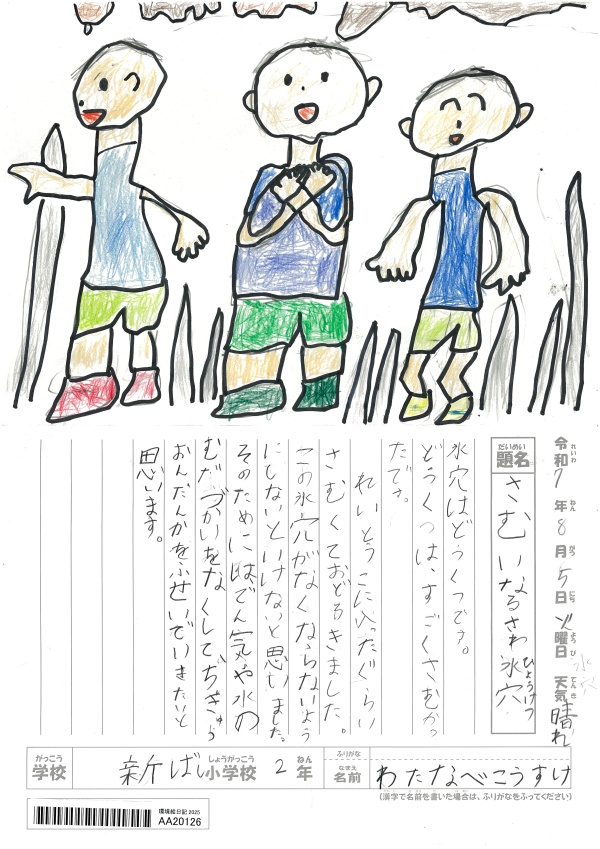 令和7年8月5日火曜日 天気 晴れ
れいわ ねん がつ にち ようび てんき
だいめい
題名
さむいなるさわ氷穴
ひょうけつ
氷穴
氷穴はどうくつです。
どうくつは、すごくさむかっ
たです。
れいとうこに入ったぐらい
さむくておどろきました。
この氷穴がなくならないよう
にしないといけないと思いました。
そのためにはでん気や水の
むだづかいをなくしてちきゅう
おんだんかをふせいでいきたいと
思います。
がっこう
学校
新ばし小学校 2年
しょうがっこう ねん
ふりがな
なまえ
名前
わたなべこうすけ
(漢字で名前を書いた場合は、ふりがなをふってください)
環境絵日記 2025
AA20126